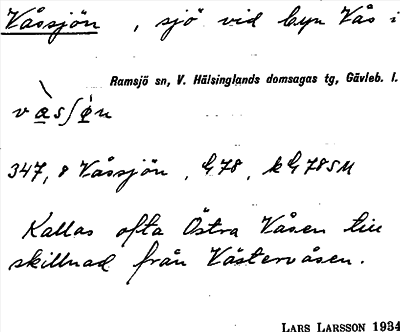 Våssjön, sjö vid byn Vås i
Ramsjö sn, V. Hälsinglands domsagas tg, Gävleb. l.
væ̀sʃø̀n
347,8 Våssjön, G78, kG78SM
Kallas ofta Östra Våsen till
skillnad från Västervåsen.
LARS LARSSON 1934